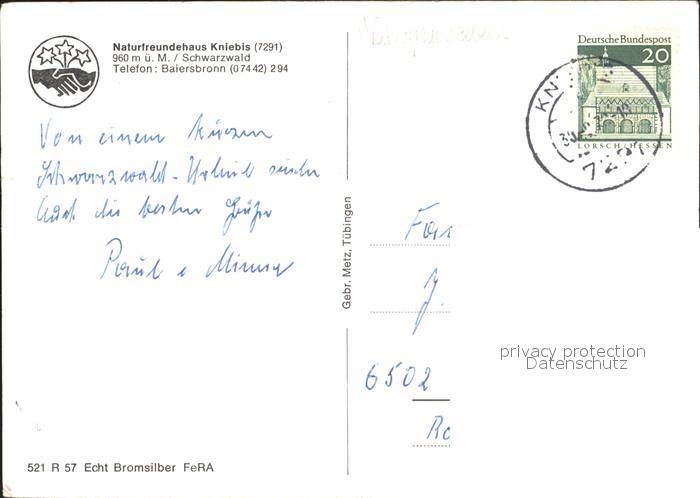 Naturfreundehaus Kniebis (7291)
960 m ü. M. / Schwarzwald
Telefon: Baiersbronn (07442) 294
Deutsche Bundespost
20
LORSCH/HESSEN
KN
7291
Von einem kurzen
Schwarzwald-Urlaub senden
Euch die besten Grüße
Paul u Minna
Gebr. Metz, Tübingen
Fa
J.
6502
privacy protection
Datenschutz
521 R 57 Echt Bromsilber FeRA